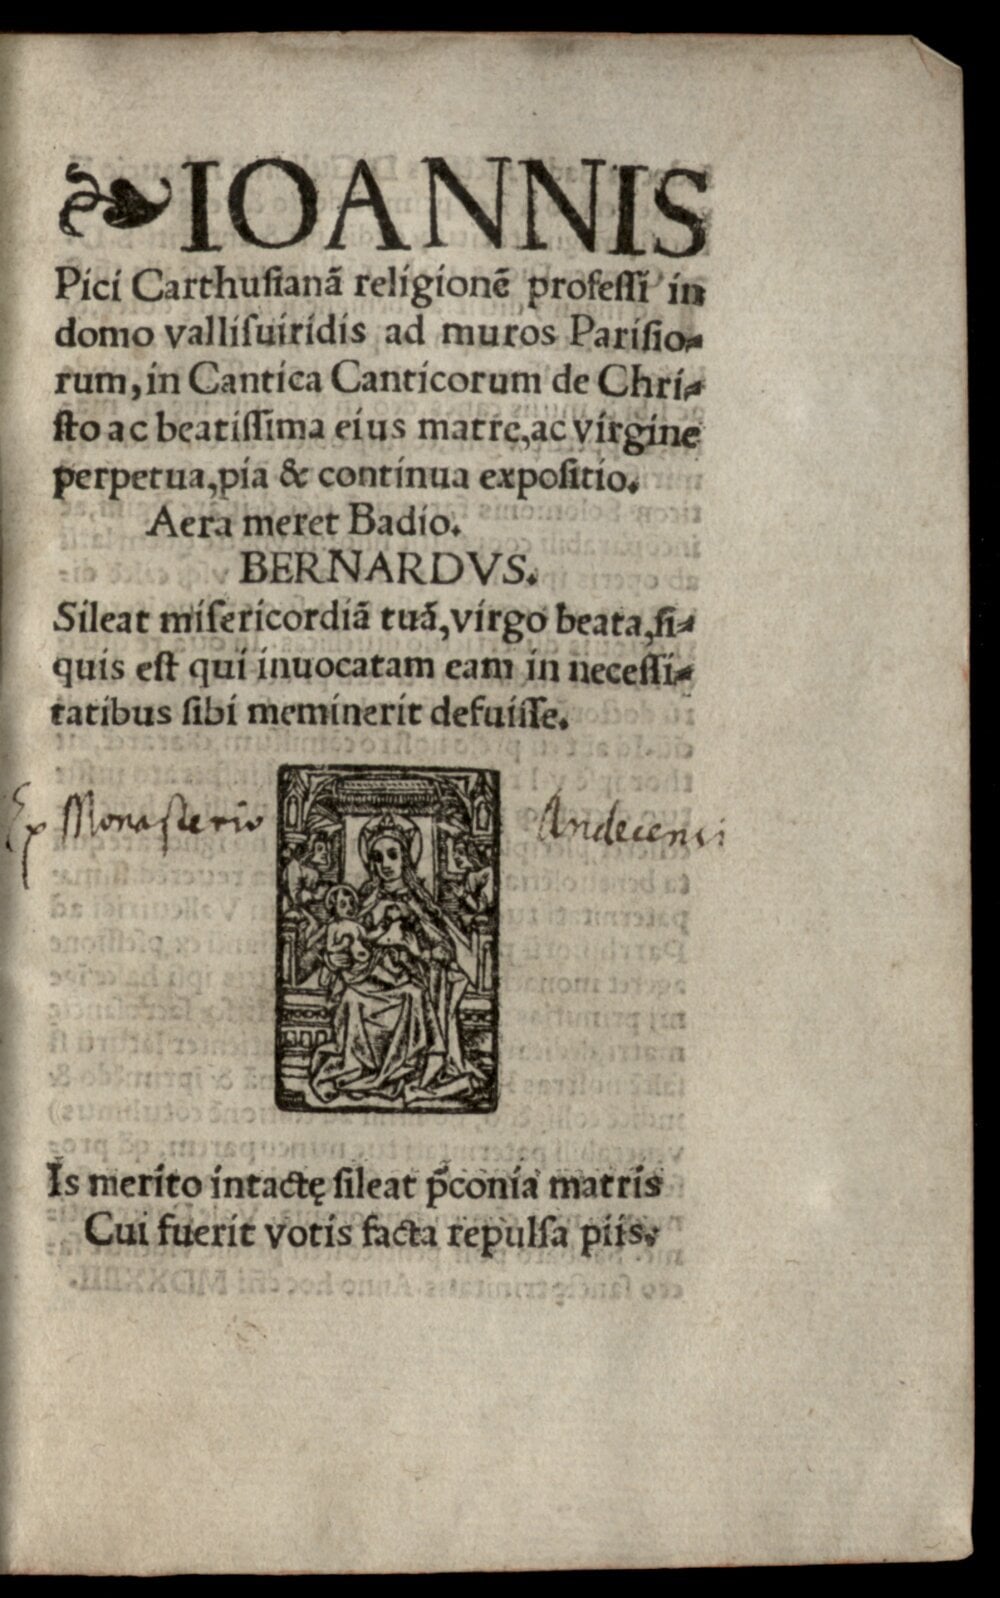 ❧IOANNIS
Pici Carthusianā religionē professi in
domo vallisuiridis ad muros Parisio-
rum, in Cantica Canticorum de Chri-
sto ac beatissima eius matre, ac virgine
perpetua, pia & continua expositio.
Aera meret Badio.
BERNARDVS.
Sileat misericordiā tuā, virgo beata, si-
quis est qui inuocatam eam in necessi-
tatibus sibi meminerit defuisse.
Ex Monasterio Andecensi
Is merito intactę sileat p̄conia matris
Cui fuerit votis facta repulsa piis.